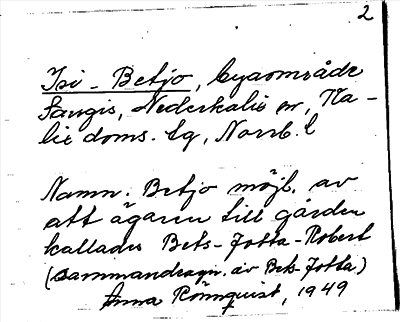 2
Isi - Betjo, byaområde
Sangis, Nederkalix sn, Ka-
lix doms. lg, Norrb. l
Namn. Betjo möjl. av
att ägaren till gården
kallades Bets-Jotta-Robert
(sammandragn. av Bets-Jotta)
Anna Rönnquist, 1949